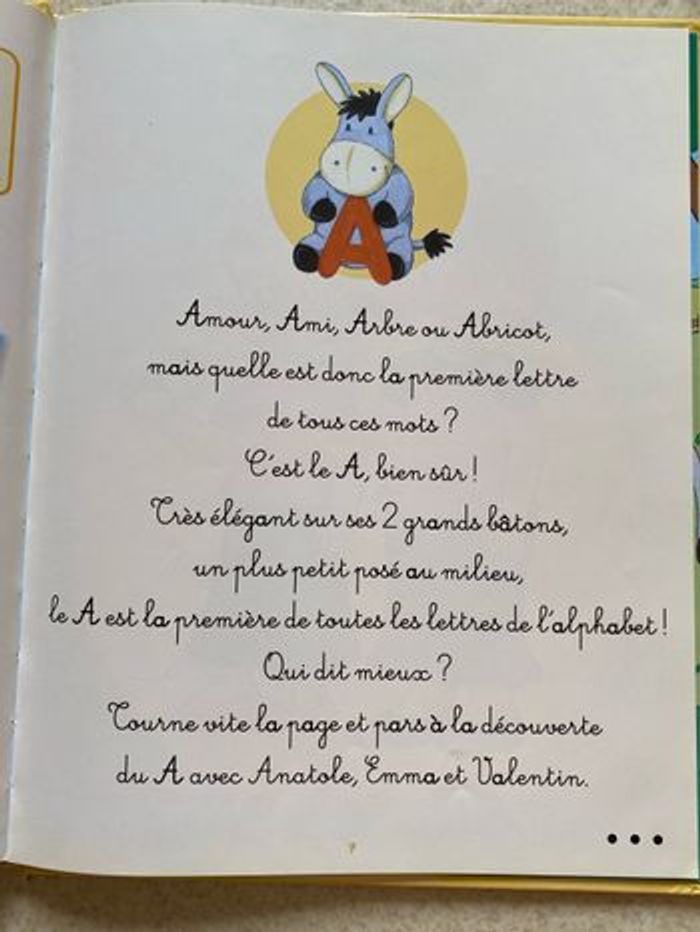 A
Amour, Ami, Arbre ou Abricot,
mais quelle est donc la première lettre
de tous ces mots ?
C'est le A, bien sûr !
Très élégant sur ses 2 grands bâtons,
un plus petit posé au milieu,
le A est la première de toutes les lettres de l'alphabet !
Qui dit mieux ?
Tourne vite la page et pars à la découverte
du A avec Anatole, Emma et Valentin.